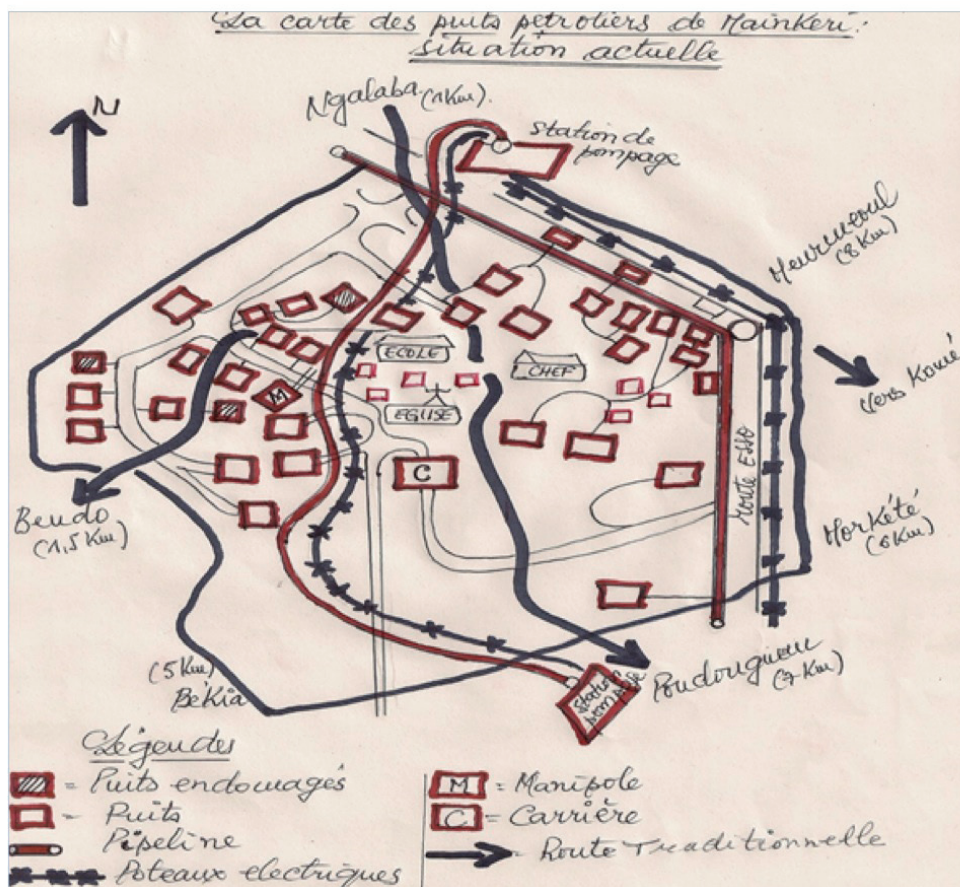 La carte des puits pétroliers de Mainkeri:
situation actuelle
N
Ngalaba (1Km).
Station de
pompage
Meurmeoul
(8Km)
Vers Komé
ECOLE
CHEF
M
EGLISE
C
Route ESSO
Morkété
(6Km)
Bendo
(1,5Km)
(5Km)
Békia
Station
pompage
Poudouguem
(7Km)
Légendes
= Puits endomagés
= Puits
Pipeline
Poteaux electriques
M = Manipole
C = Carrière
Route Traditionnelle